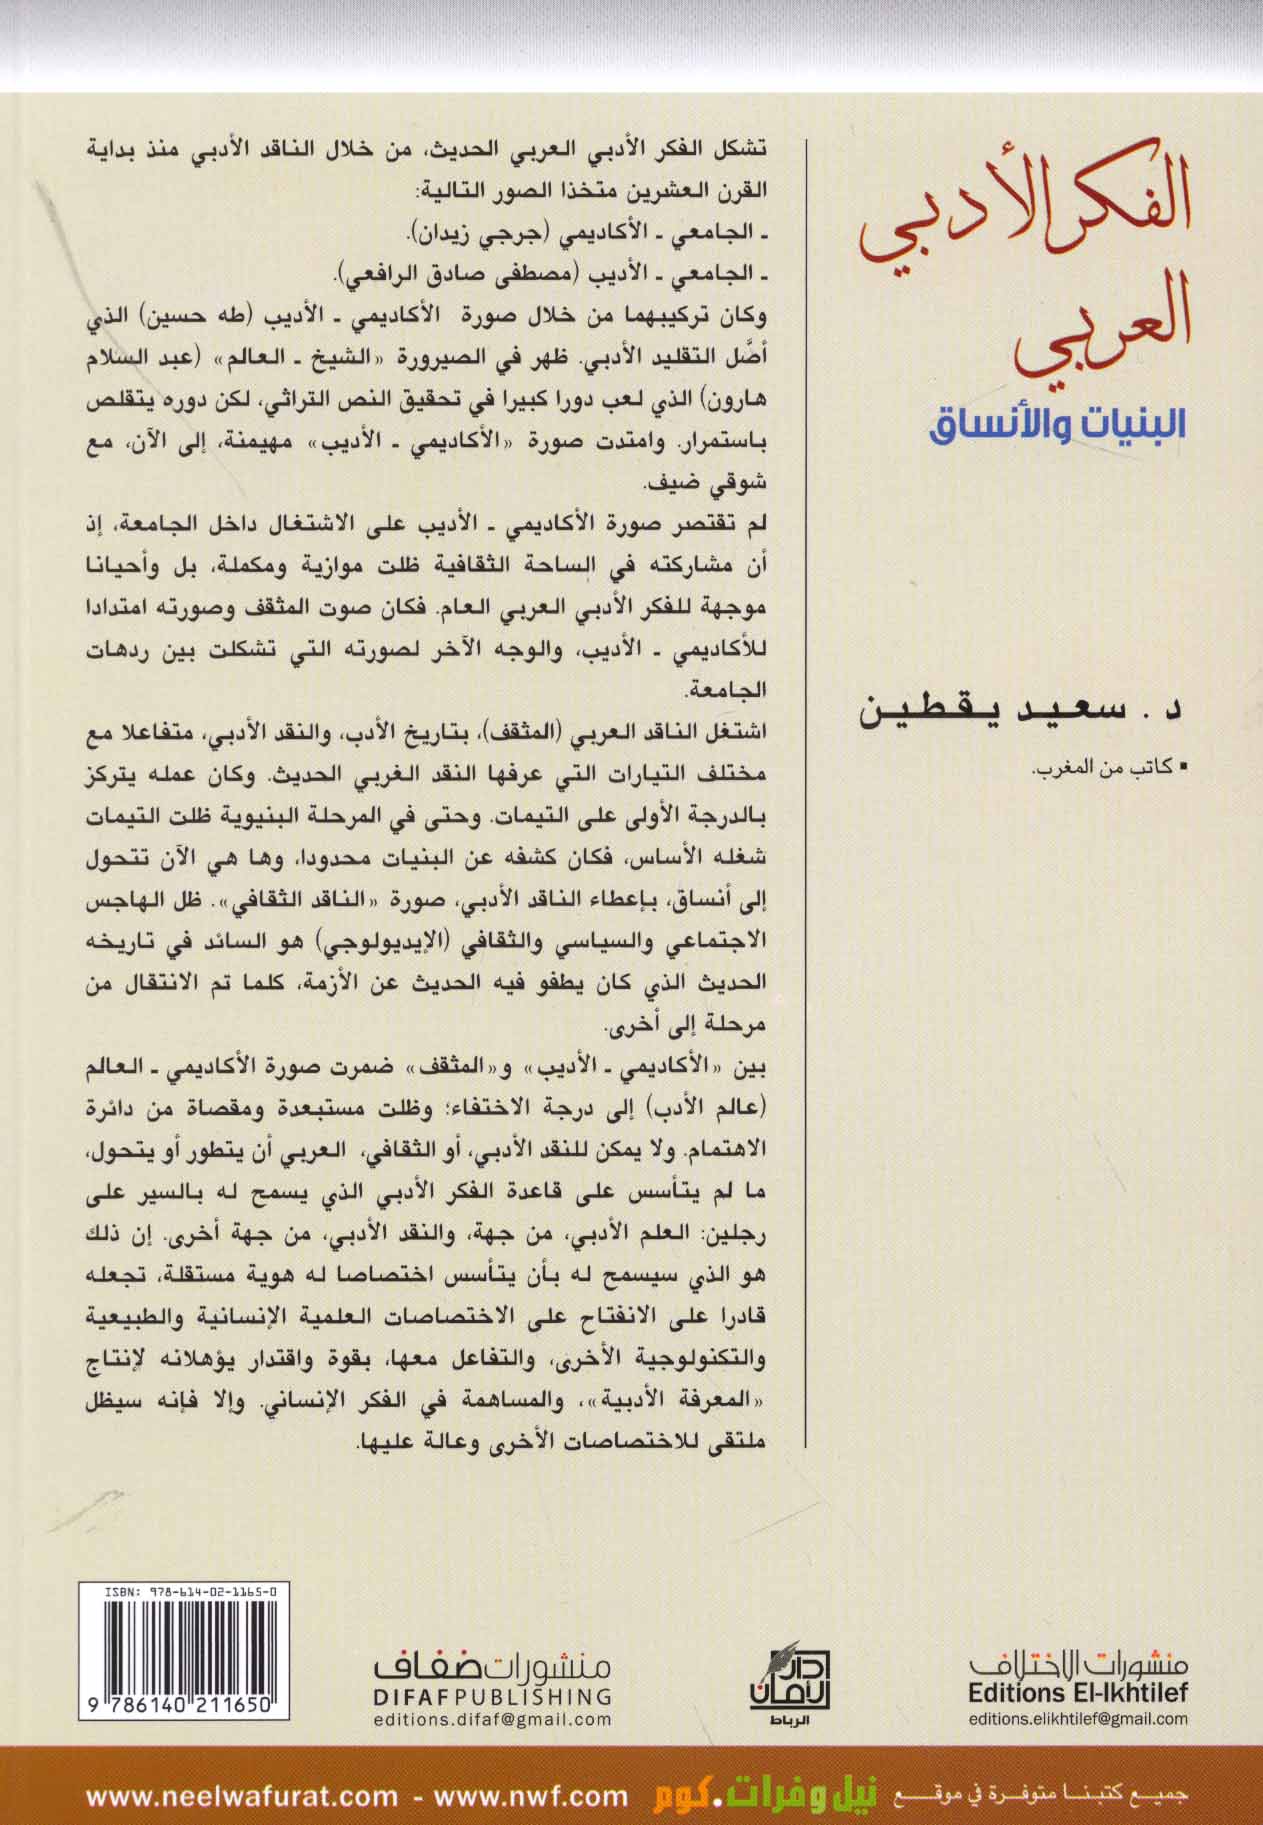 الفكر الأدبي
العربي
البنيات والأنساق
د. سعيد يقطين
▪ كاتب من المغرب.
تشكل الفكر الأدبي العربي الحديث، من خلال الناقد الأدبي منذ بداية
القرن العشرين متخذا الصور التالية:
ـ الجامعي ـ الأكاديمي (جرجي زيدان).
ـ الجامعي ـ الأديب (مصطفى صادق الرافعي).
وكان تركيبهما من خلال صورة الأكاديمي ـ الأديب (طه حسين) الذي
أصَّل التقليد الأدبي. ظهر في الصيرورة «الشيخ ـ العالم» (عبد السلام
هارون) الذي لعب دورا كبيرا في تحقيق النص التراثي، لكن دوره يتقلص
باستمرار. وامتدت صورة «الأكاديمي ـ الأديب» مهيمنة، إلى الآن، مع
شوقي ضيف.
لم تقتصر صورة الأكاديمي ـ الأديب على الاشتغال داخل الجامعة، إذ
أن مشاركته في الساحة الثقافية ظلت موازية ومكملة، بل وأحيانا
موجهة للفكر الأدبي العربي العام. فكان صوت المثقف وصورته امتدادا
للأكاديمي ـ الأديب، والوجه الآخر لصورته التي تشكلت بين ردهات
الجامعة.
اشتغل الناقد العربي (المثقف)، بتاريخ الأدب، والنقد الأدبي، متفاعلا مع
مختلف التيارات التي عرفها النقد الغربي الحديث. وكان عمله يتركز
بالدرجة الأولى على التيمات. وحتى في المرحلة البنيوية ظلت التيمات
شغله الأساس، فكان كشفه عن البنيات محدودا، وها هي الآن تتحول
إلى أنساق، بإعطاء الناقد الأدبي، صورة «الناقد الثقافي». ظل الهاجس
الاجتماعي والسياسي والثقافي (الإيديولوجي) هو السائد في تاريخه
الحديث الذي كان يطفو فيه الحديث عن الأزمة، كلما تم الانتقال من
مرحلة إلى أخرى.
بين «الأكاديمي ـ الأديب» و«المثقف» ضمرت صورة الأكاديمي ـ العالم
(عالم الأدب) إلى درجة الاختفاء؛ وظلت مستبعدة ومقصاة من دائرة
الاهتمام. ولا يمكن للنقد الأدبي، أو الثقافي، العربي أن يتطور أو يتحول،
ما لم يتأسس على قاعدة الفكر الأدبي الذي يسمح له بالسير على
رجلين: العلم الأدبي، من جهة، والنقد الأدبي، من جهة أخرى. إن ذلك
هو الذي سيسمح له بأن يتأسس اختصاصا له هوية مستقلة، تجعله
قادرا على الانفتاح على الاختصاصات العلمية الإنسانية والطبيعية
والتكنولوجية الأخرى، والتفاعل معها، بقوة واقتدار يؤهلانه لإنتاج
«المعرفة الأدبية»، والمساهمة في الفكر الإنساني. وإلا فإنه سيظل
ملتقى للاختصاصات الأخرى وعالة عليها.
منشورات الاختلاف
Editions El-Ikhtilef
editions.elikhtilef@gmail.com
دار
الأمان
الرباط
منشورات ضفاف
DIFAF PUBLISHING
editions.difaf@gmail.com
ISBN: 978-614-02-1165-0
9 786140 211650
جميع كتبنا متوفرة في موقع نيل وفرات.كوم www.neelwafurat.com - www.nwf.com